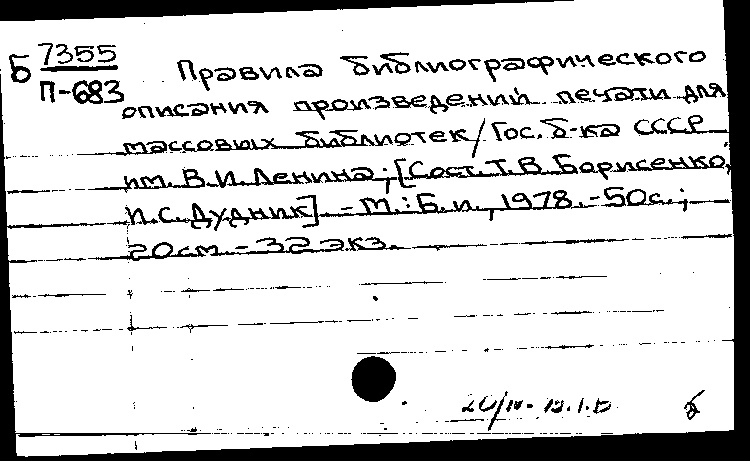 Б 7355
П-683
Правила библиографического
описания произведений печати для
массовых библиотек/Гос. б-ка СССР
им. В.И. Ленина; [Сост. Т.В. Борисенко,
И.С. Дудник]. - М.: Б.и., 1978. - 50с.;
20см. - 32 экз.